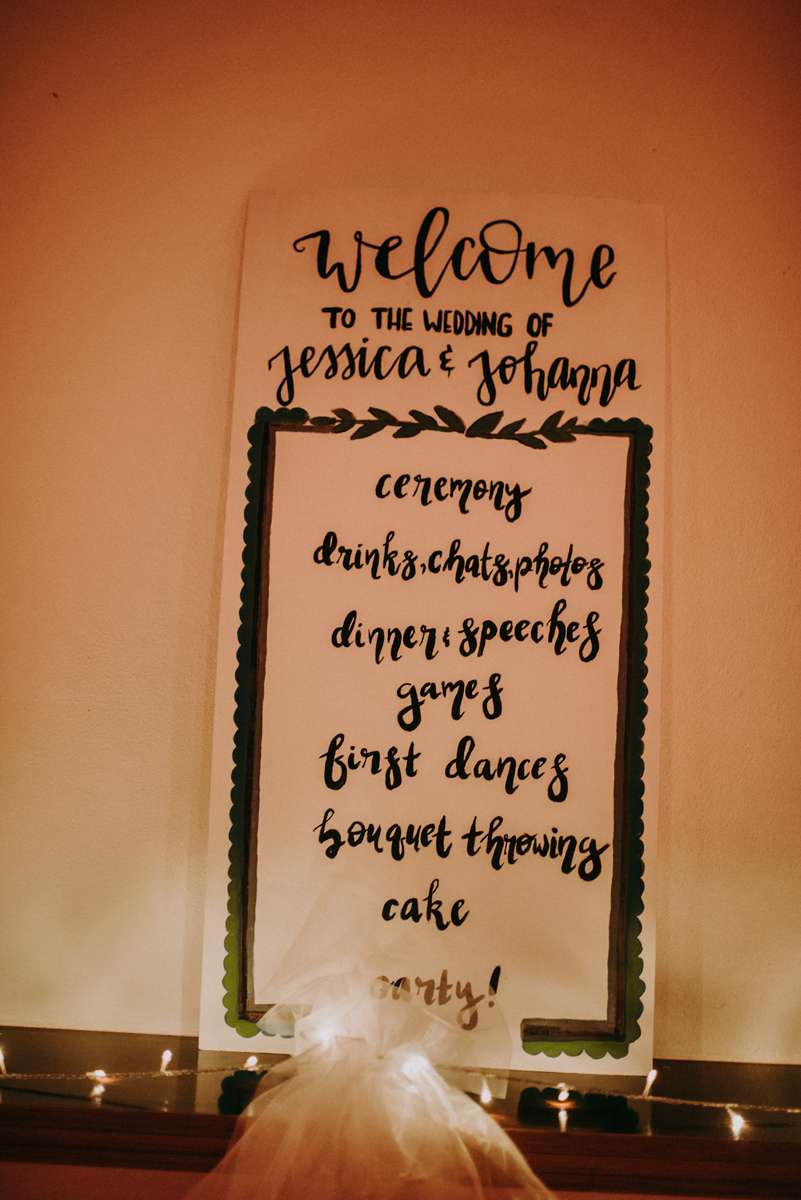 welcome
TO THE WEDDING OF
jessica & johanna
ceremony
drinks, chats, photos
dinner & speeches
games
first dances
bouquet throwing
cake
party!